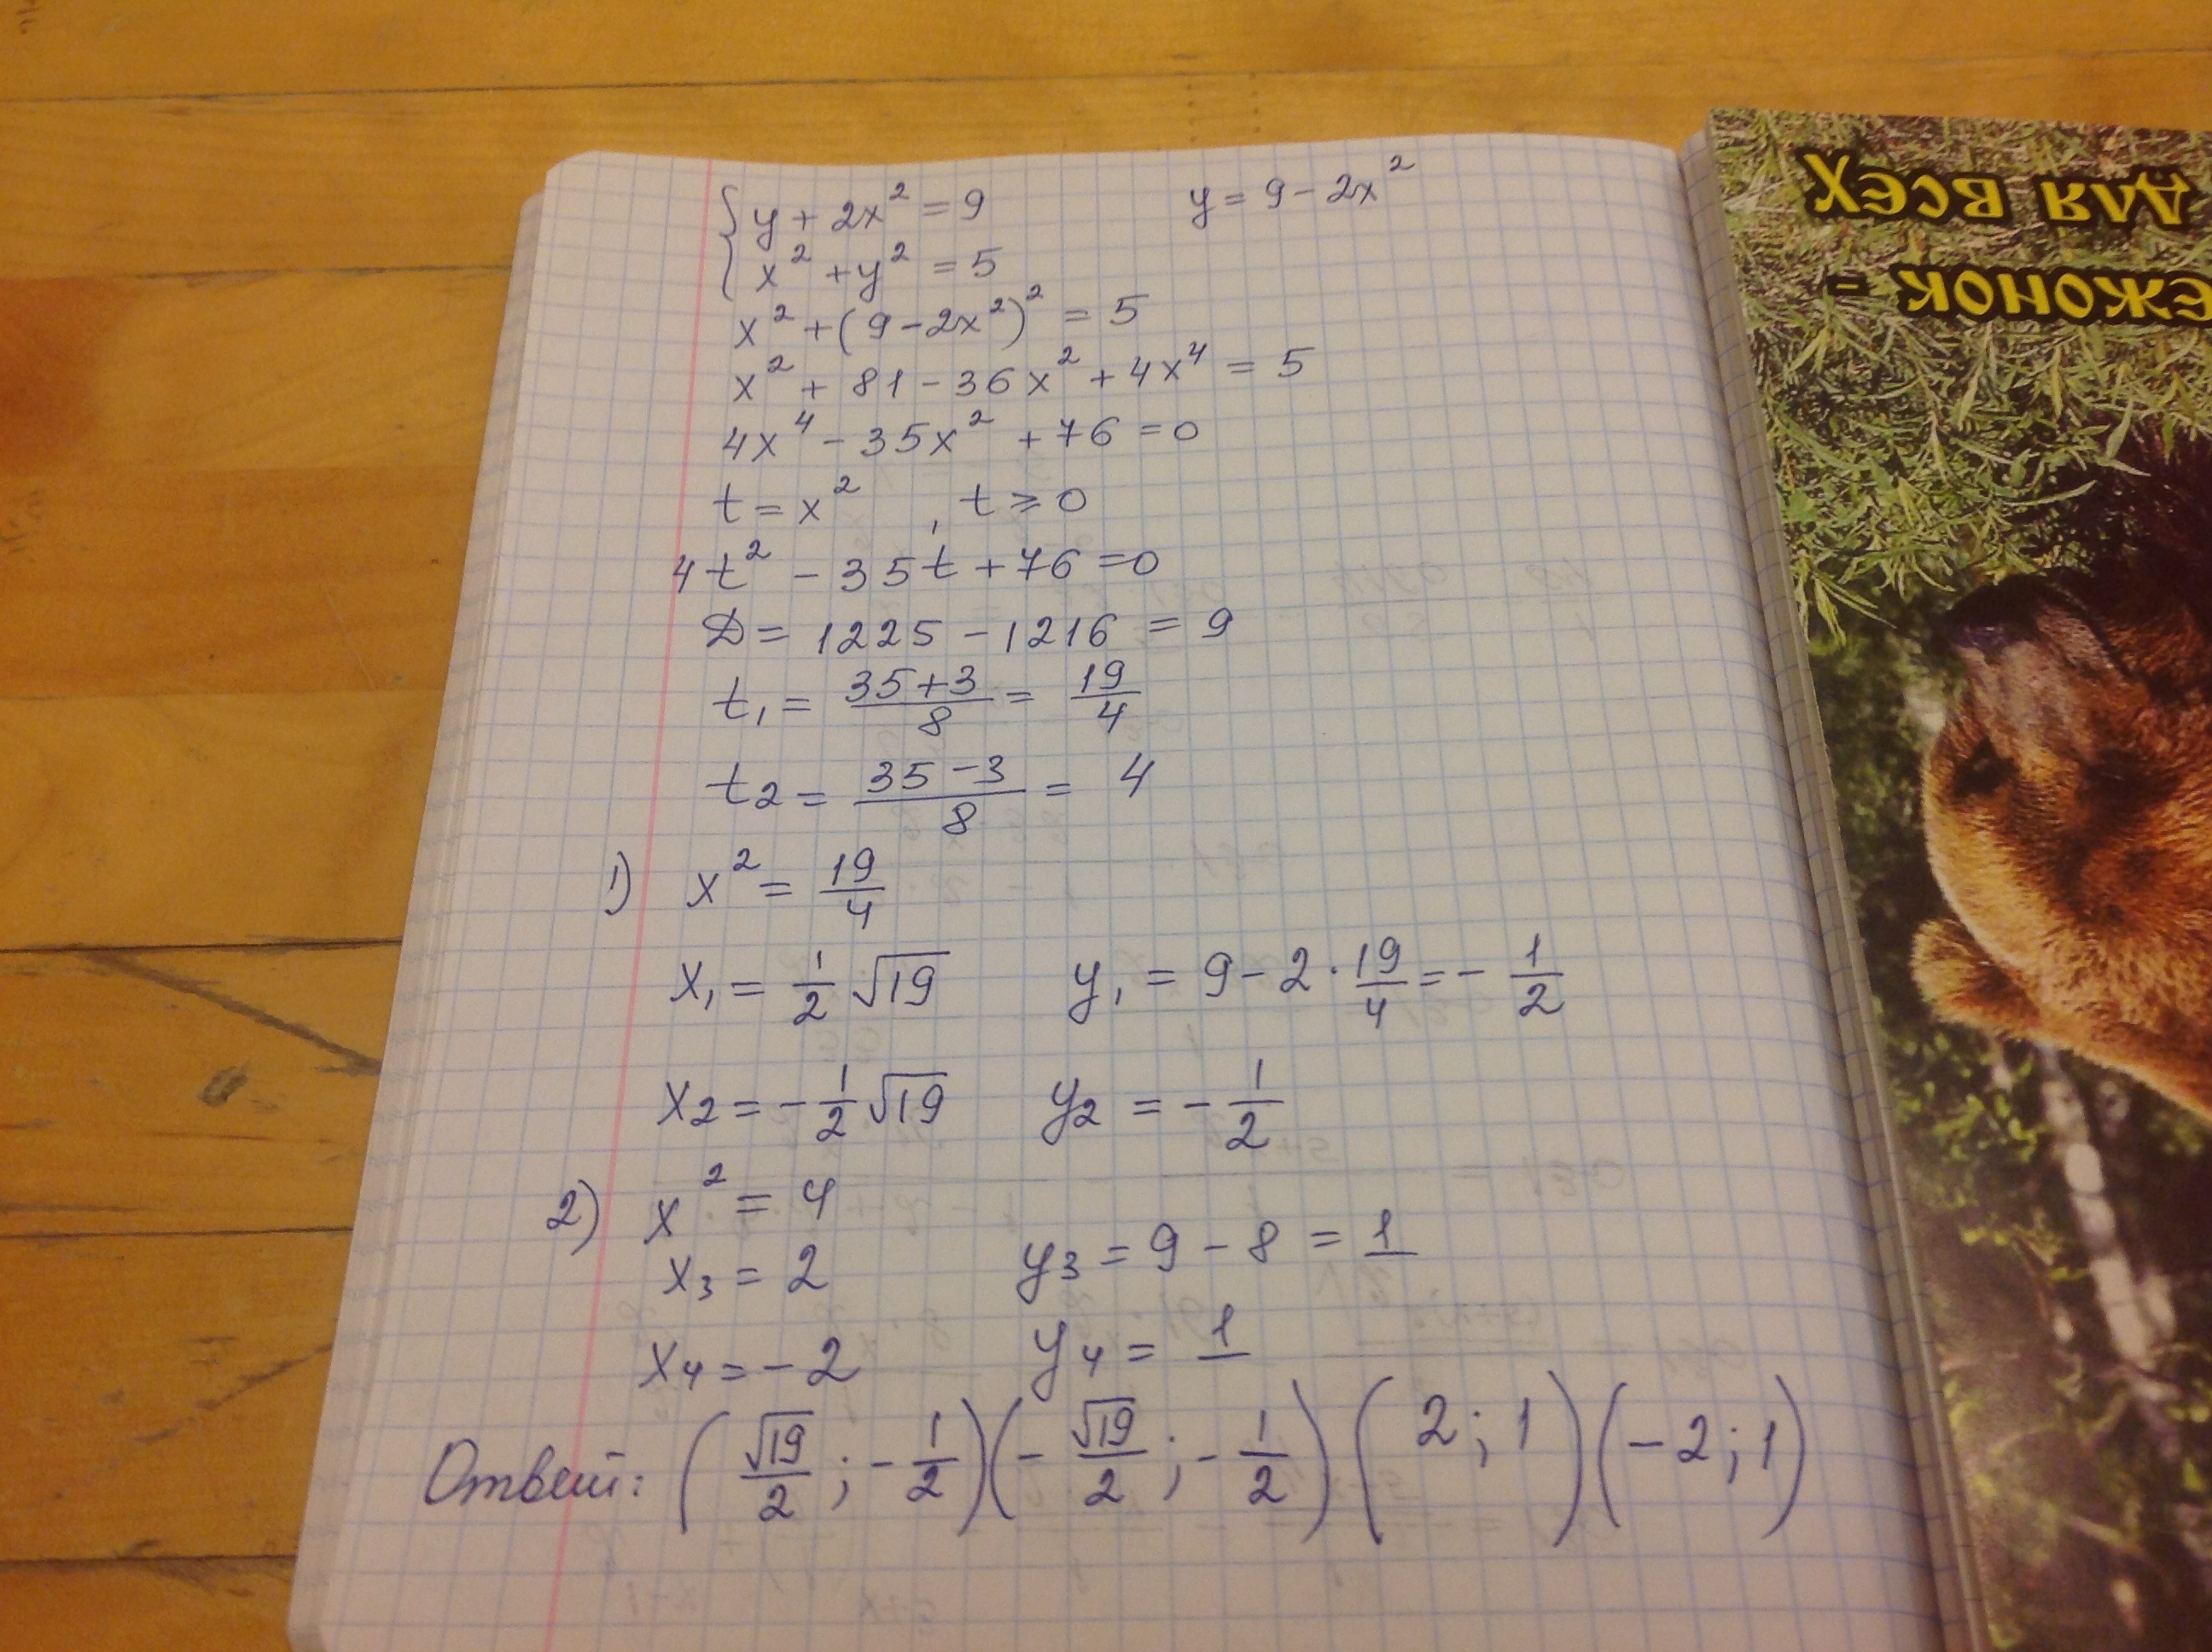 { y + 2x² = 9    y = 9 - 2x²
x² + y² = 5
x² + (9 - 2x²)² = 5
x² + 81 - 36x² + 4x⁴ = 5
4x⁴ - 35x² + 76 = 0
t = x² , t ≥ 0
4t² - 35t + 76 = 0
D = 1225 - 1216 = 9
t₁ = (35+3)/8 = 19/4
t₂ = (35-3)/8 = 4
1) x² = 19/4
x₁ = 1/2 √19    y₁ = 9 - 2 · 19/4 = - 1/2
x₂ = - 1/2 √19    y₂ = - 1/2
2) x² = 4
x₃ = 2    y₃ = 9 - 8 = 1
x₄ = - 2    y₄ = 1
Ответ: (√19/2 ; - 1/2) (- √19/2 ; - 1/2) (2 ; 1) (- 2 ; 1)
ежонок -
для всех